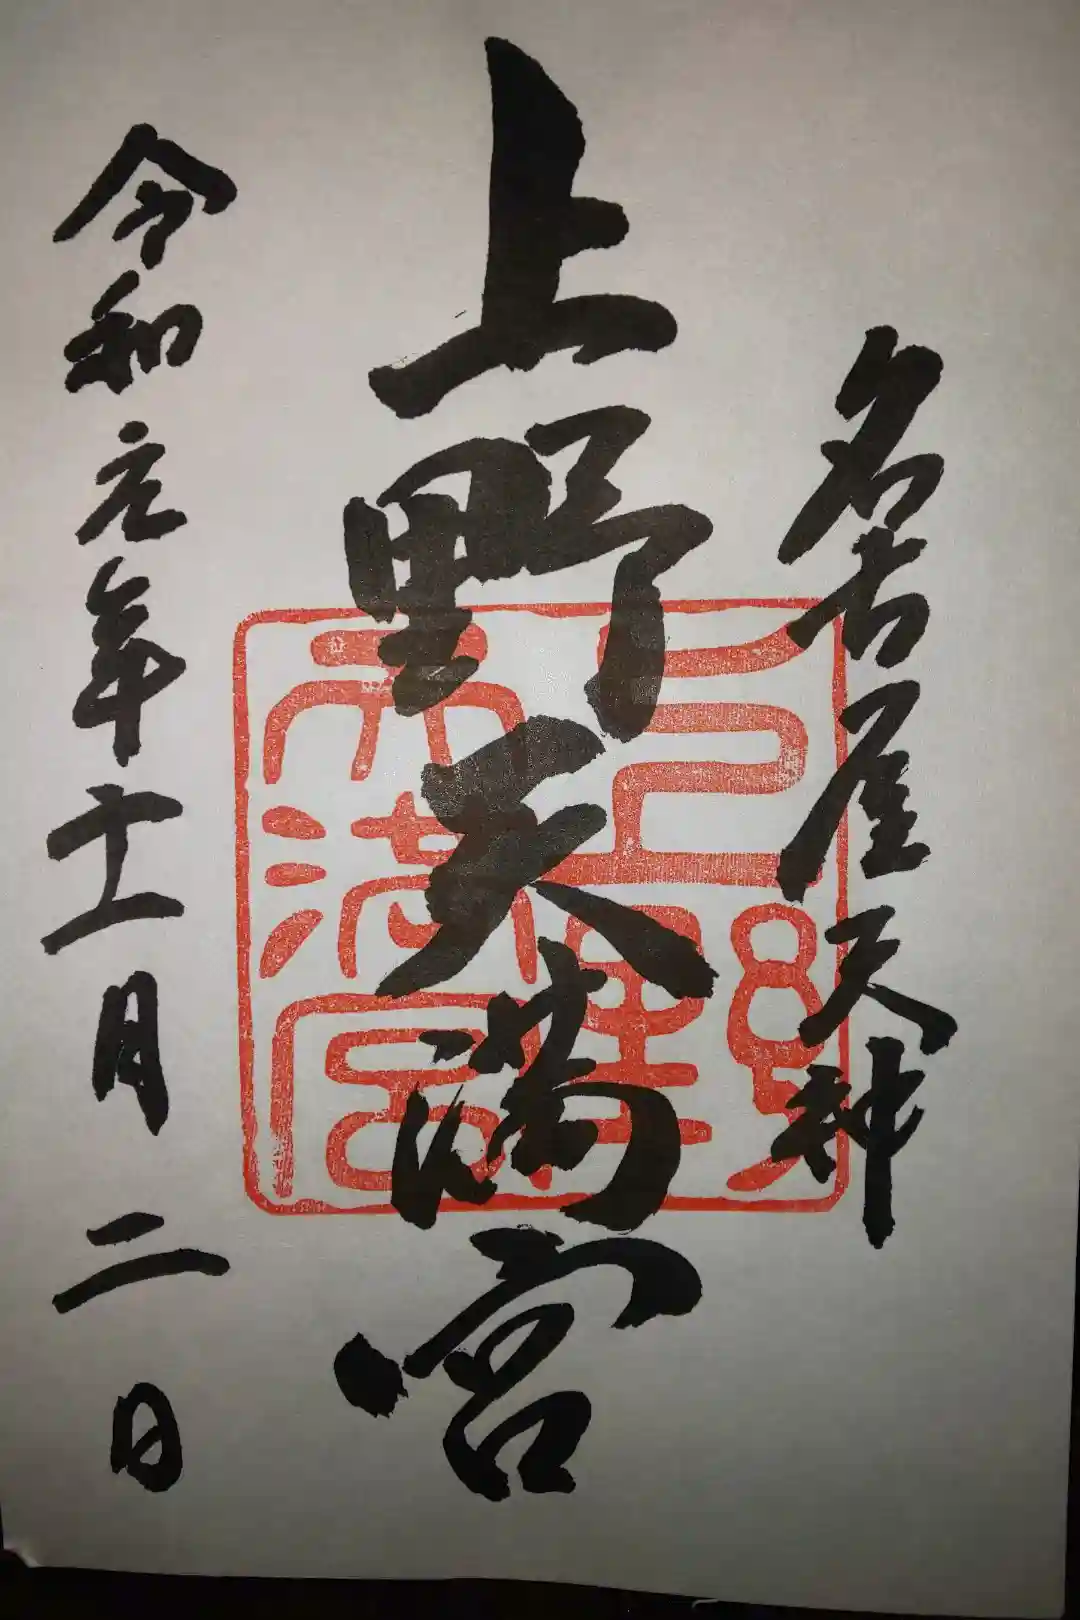 名古屋天神
上野天満宮
令和元年十一月二日
上野
天満宮